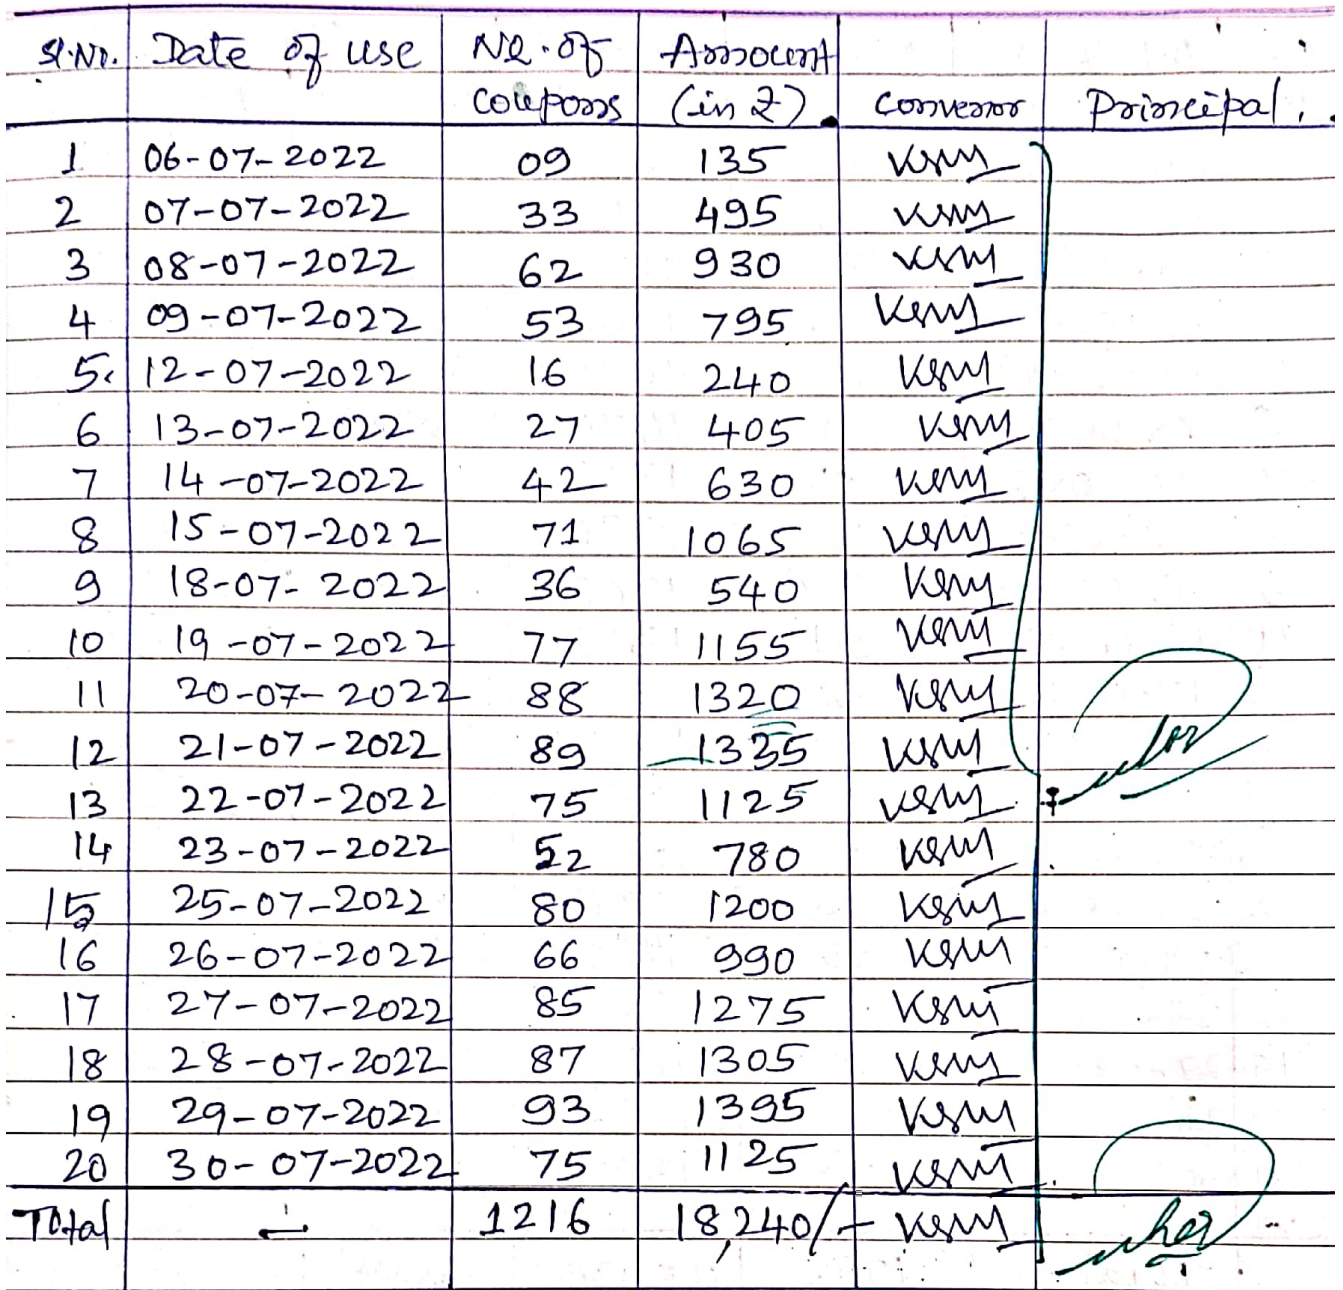 Sl.No. Date of use No. of Amount
coupons (in ₹) convenor Principal.
1 06-07-2022 09 135
2 07-07-2022 33 495
3 08-07-2022 62 930
4 09-07-2022 53 795
5. 12-07-2022 16 240
6 13-07-2022 27 405
7 14-07-2022 42 630
8 15-07-2022 71 1065
9 18-07-2022 36 540
10 19-07-2022 77 1155
11 20-07-2022 88 1320
12 21-07-2022 89 1335
13 22-07-2022 75 1125
14 23-07-2022 52 780
15 25-07-2022 80 1200
16 26-07-2022 66 990
17 27-07-2022 85 1275
18 28-07-2022 87 1305
19 29-07-2022 93 1395
20 30-07-2022 75 1125
Total - 1216 18,240/-